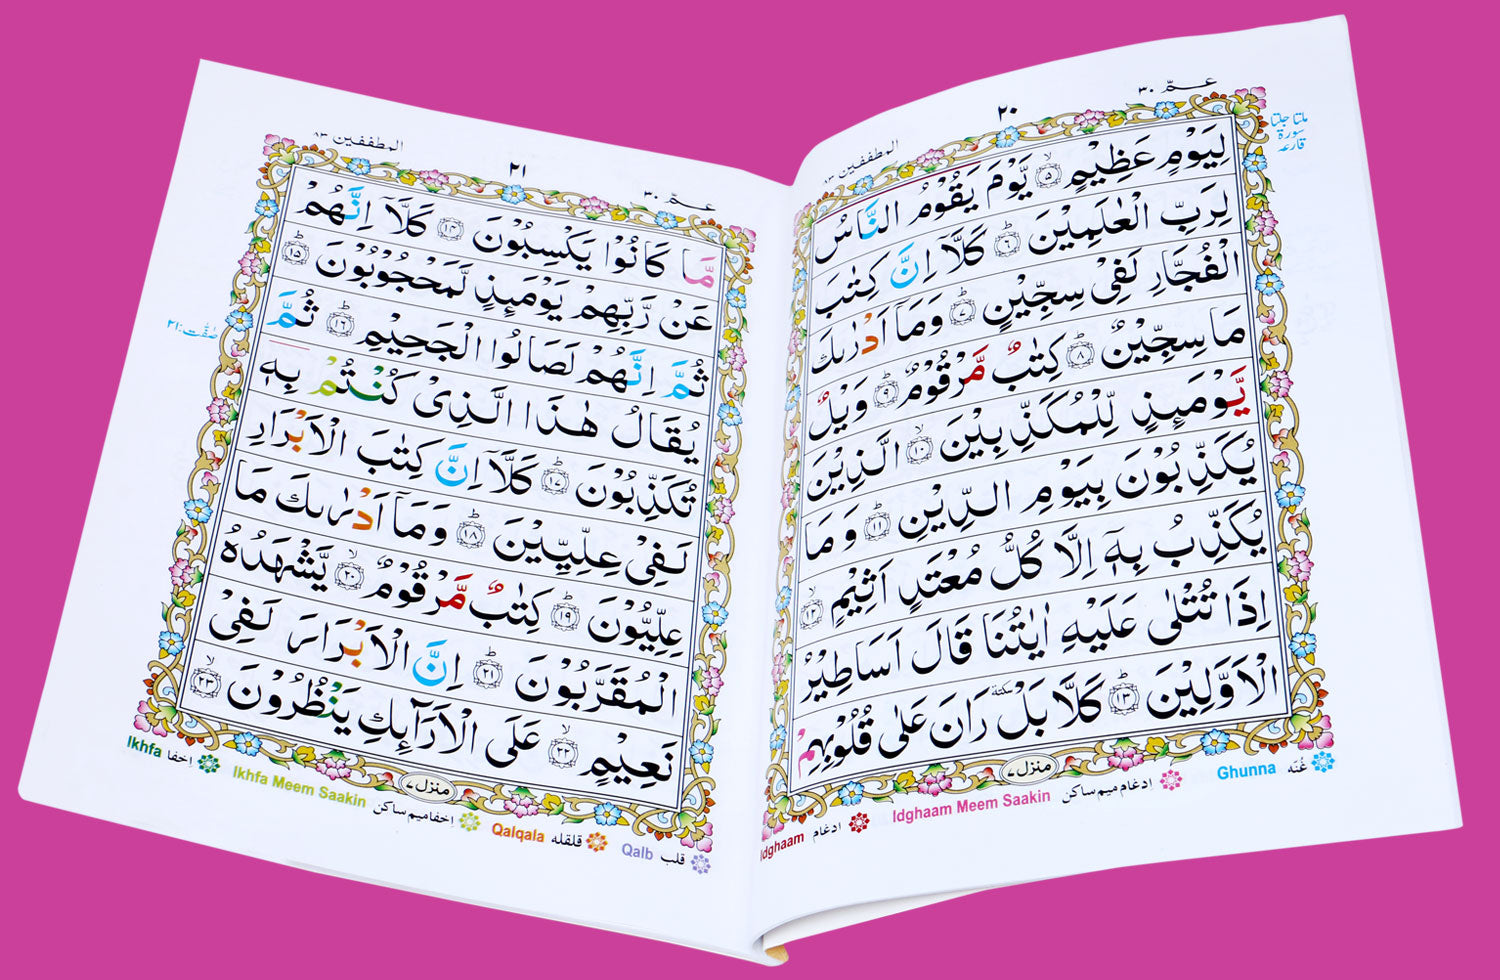 عـمّ ٣٠
٢٠
المطففين ٨٣
ملتا جلتا
سورة
قارعہ
لِيَوْمٍ عَظِيْمٍ ۙ﴿۵﴾ يَّوْمَ يَقُوْمُ النَّاسُ
لِرَبِّ الْعٰلَمِيْنَ ؕ﴿۶﴾ كَلَّاۤ اِنَّ كِتٰبَ
الْفُجَّارِ لَفِىْ سِجِّيْنٍ ؕ﴿۷﴾ وَمَاۤ اَدْرٰىكَ
مَا سِجِّيْنٌ ؕ﴿۸﴾ كِتٰبٌ مَّرْقُوْمٌ ؕ﴿۹﴾ وَيْلٌ
يَّوْمَىِٕذٍ لِّلْمُكَذِّبِيْنَ ۙ﴿۱۰﴾ الَّذِيْنَ
يُكَذِّبُوْنَ بِيَوْمِ الدِّيْنِ ؕ﴿۱۱﴾ وَمَا
يُكَذِّبُ بِهٖۤ اِلَّا كُلُّ مُعْتَدٍ اَثِيْمٍ ۙ﴿۱۲﴾
اِذَا تُتْلٰى عَلَيْهِ اٰيٰتُنَا قَالَ اَسَاطِيْرُ
الْاَوَّلِيْنَ ؕ﴿۱۳﴾ كَلَّا بَلْ سكتة رَانَ عَلٰى قُلُوْبِهِمْ
منزل ۷
غُنّه Ghunna
ادغام میم ساکن Idghaam Meem Saakin
ادغام Idghaam
المطففين ٨٣
٢١
عـمّ ٣٠
مَّا كَانُوْا يَكْسِبُوْنَ ﴿۱۴﴾ كَلَّاۤ اِنَّهُمْ
عَنْ رَّبِّهِمْ يَوْمَىِٕذٍ لَّمَحْجُوْبُوْنَ ؕ﴿۱۵﴾
ثُمَّ اِنَّهُمْ لَصَالُوا الْجَحِيْمِ ؕ﴿۱۶﴾ ثُمَّ
يُقَالُ هٰذَا الَّذِىْ كُنْتُمْ بِهٖ
تُكَذِّبُوْنَ ؕ﴿۱۷﴾ كَلَّاۤ اِنَّ كِتٰبَ الْاَبْرَارِ
لَفِىْ عِلِّيِّيْنَ ؕ﴿۱۸﴾ وَمَاۤ اَدْرٰىكَ مَا
عِلِّيُّوْنَ ؕ﴿۱۹﴾ كِتٰبٌ مَّرْقُوْمٌ ۙ﴿۲۰﴾ يَّشْهَدُهُ
الْمُقَرَّبُوْنَ ؕ﴿۲۱﴾ اِنَّ الْاَبْرَارَ لَفِىْ
نَعِيْمٍ ۙ﴿۲۲﴾ عَلَى الْاَرَآىِٕكِ يَنْظُرُوْنَ ۙ﴿۲۳﴾
منزل ۷
اِخفا Ikhfa
اِخفا میم ساکن Ikhfa Meem Saakin
قلقله Qalqala
قلب Qalb